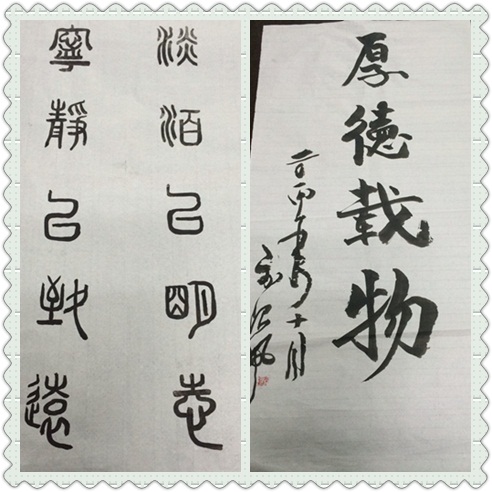 淡泊以明志
寧靜以致遠
厚德載物
十月